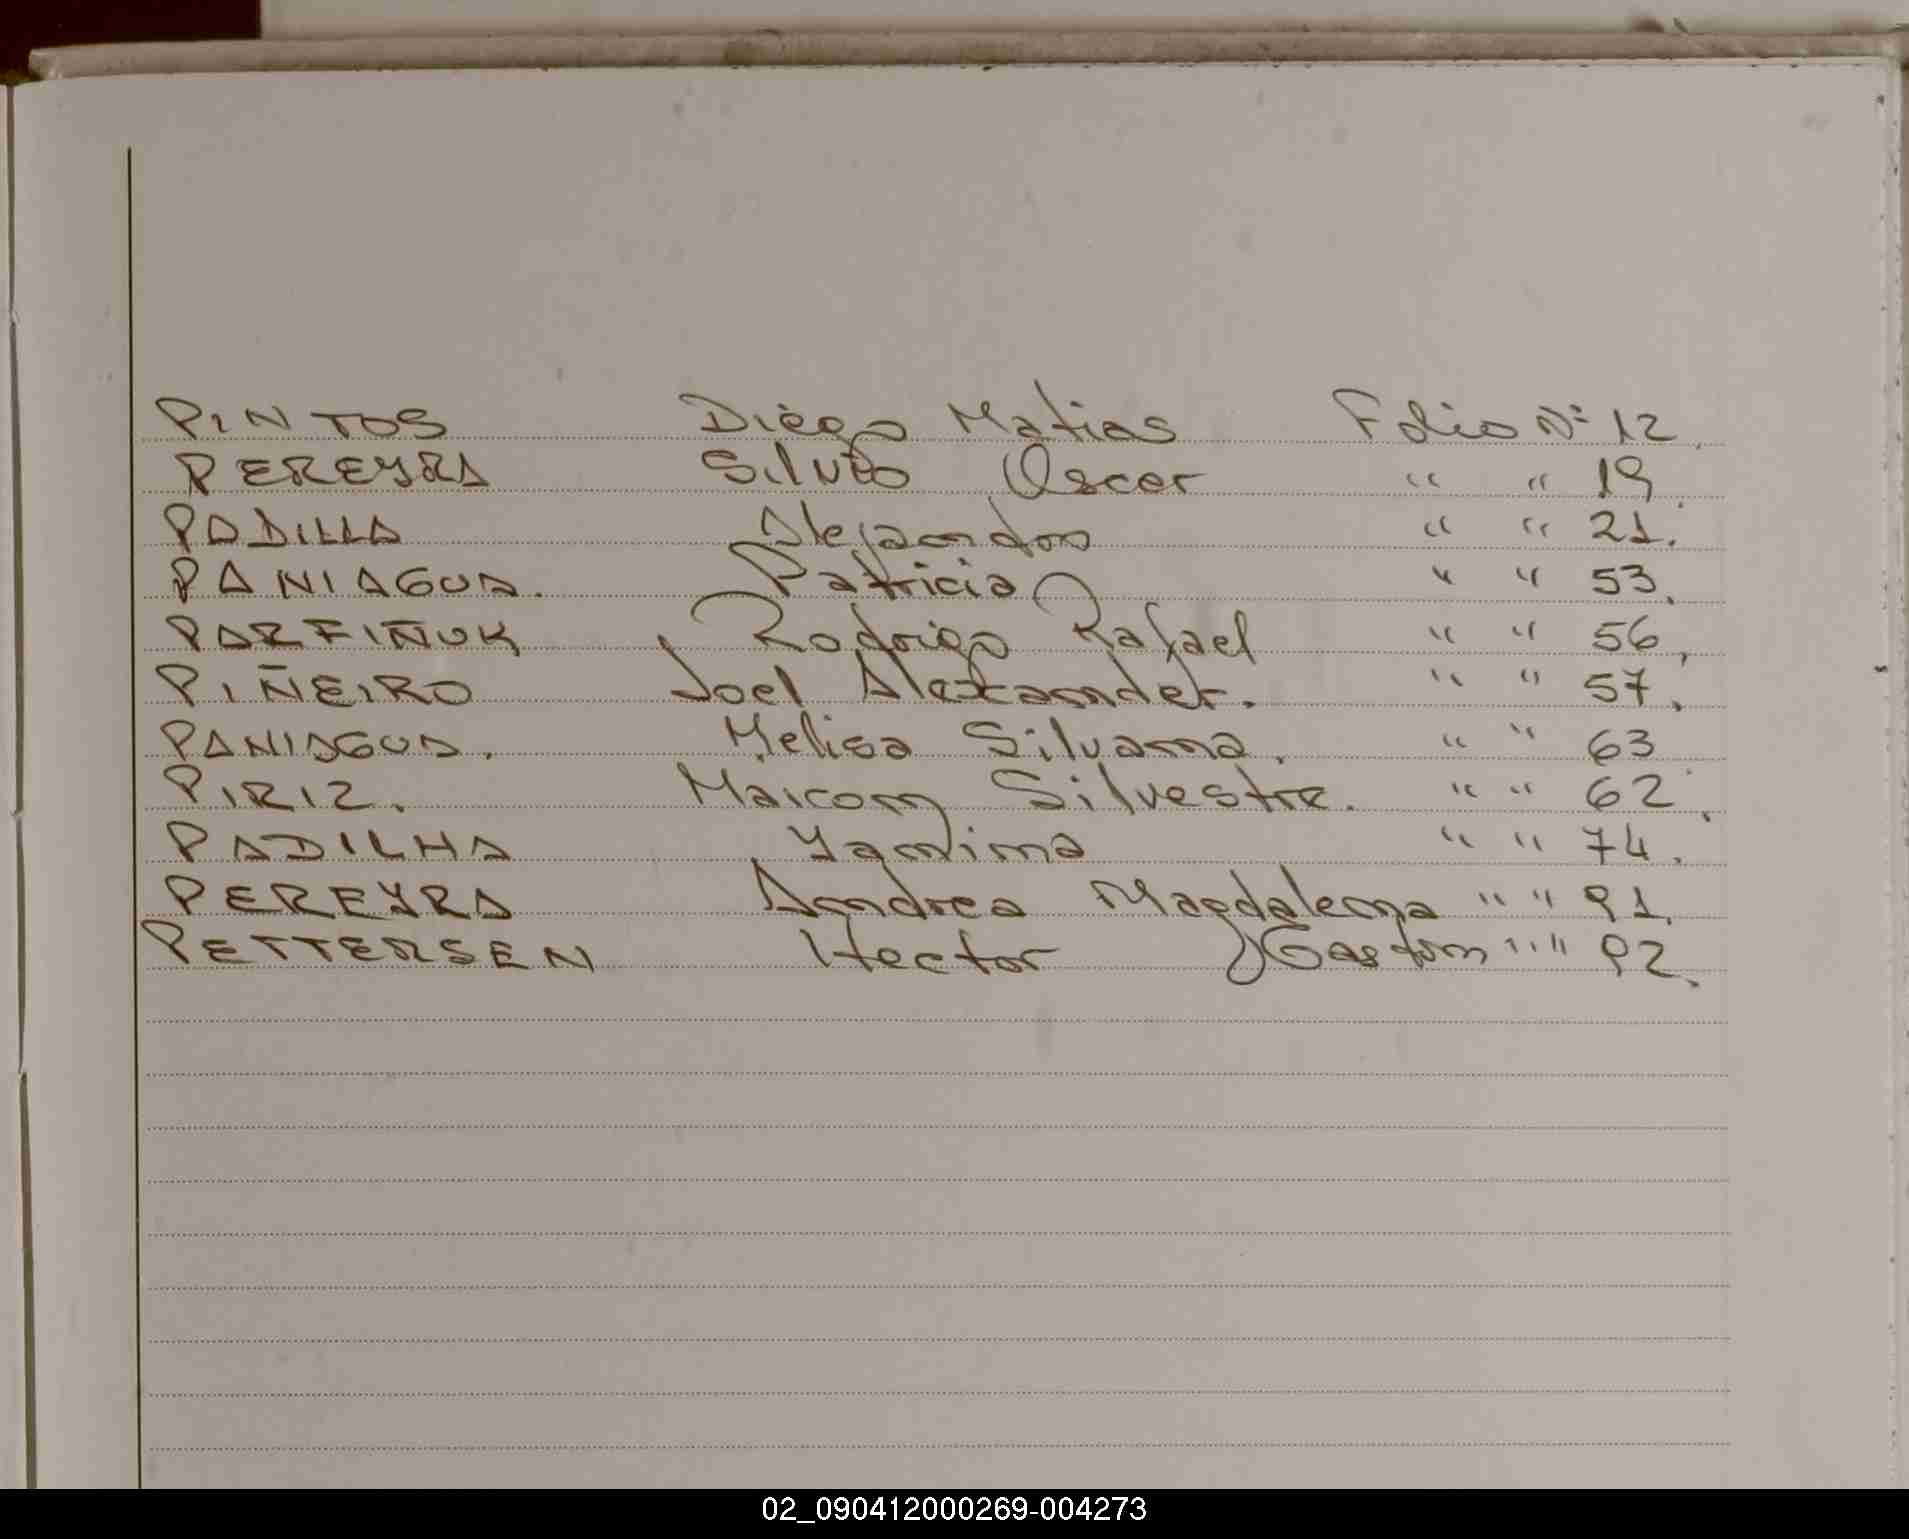 PINTOS Diego Matias Folio Nº 12.
PEREYRA Silvio Oscar " " 19.
PADILLA Alejandro " " 21.
PANIAGUA. Patricia " " 53.
PARFIÑUK Rodrigo Rafael " " 56.
PIÑEIRO Joel Alexander. " " 57.
PANIAGUA. Melisa Silvana. " " 63
PIRIZ. Maicom Silvestre. " " 62.
PADILHA Yamima " " 74.
PEREYRA Andrea Magdalena " " 91.
PETTERSEN Hector Gaston " " 92.
02_090412000269-004273